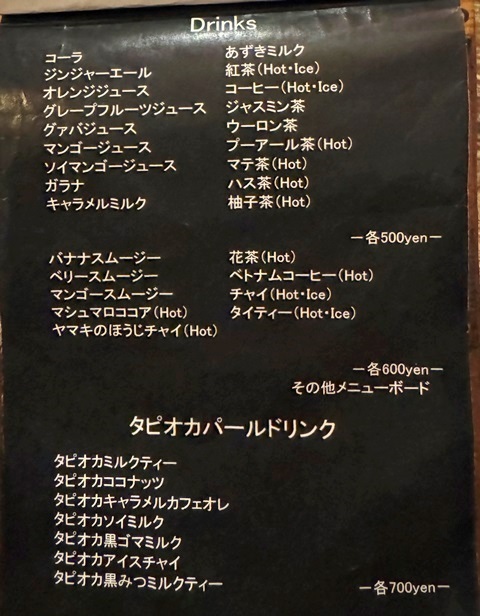 Drinks
コーラ
ジンジャーエール
オレンジジュース
グレープフルーツジュース
グァバジュース
マンゴージュース
ソイマンゴージュース
ガラナ
キャラメルミルク
あずきミルク
紅茶(Hot・Ice)
コーヒー(Hot・Ice)
ジャスミン茶
ウーロン茶
プーアール茶(Hot)
マテ茶(Hot)
ハス茶(Hot)
柚子茶(Hot)
ー各500yenー
バナナスムージー
ベリースムージー
マンゴースムージー
マシュマロココア(Hot)
ヤマキのほうじチャイ(Hot)
花茶(Hot)
ベトナムコーヒー(Hot)
チャイ(Hot・Ice)
タイティー(Hot・Ice)
ー各600yenー
その他メニューボード
タピオカパールドリンク
タピオカミルクティー
タピオカココナッツ
タピオカキャラメルカフェオレ
タピオカソイミルク
タピオカ黒ゴマミルク
タピオカアイスチャイ
タピオカ黒みつミルクティー
ー各700yenー